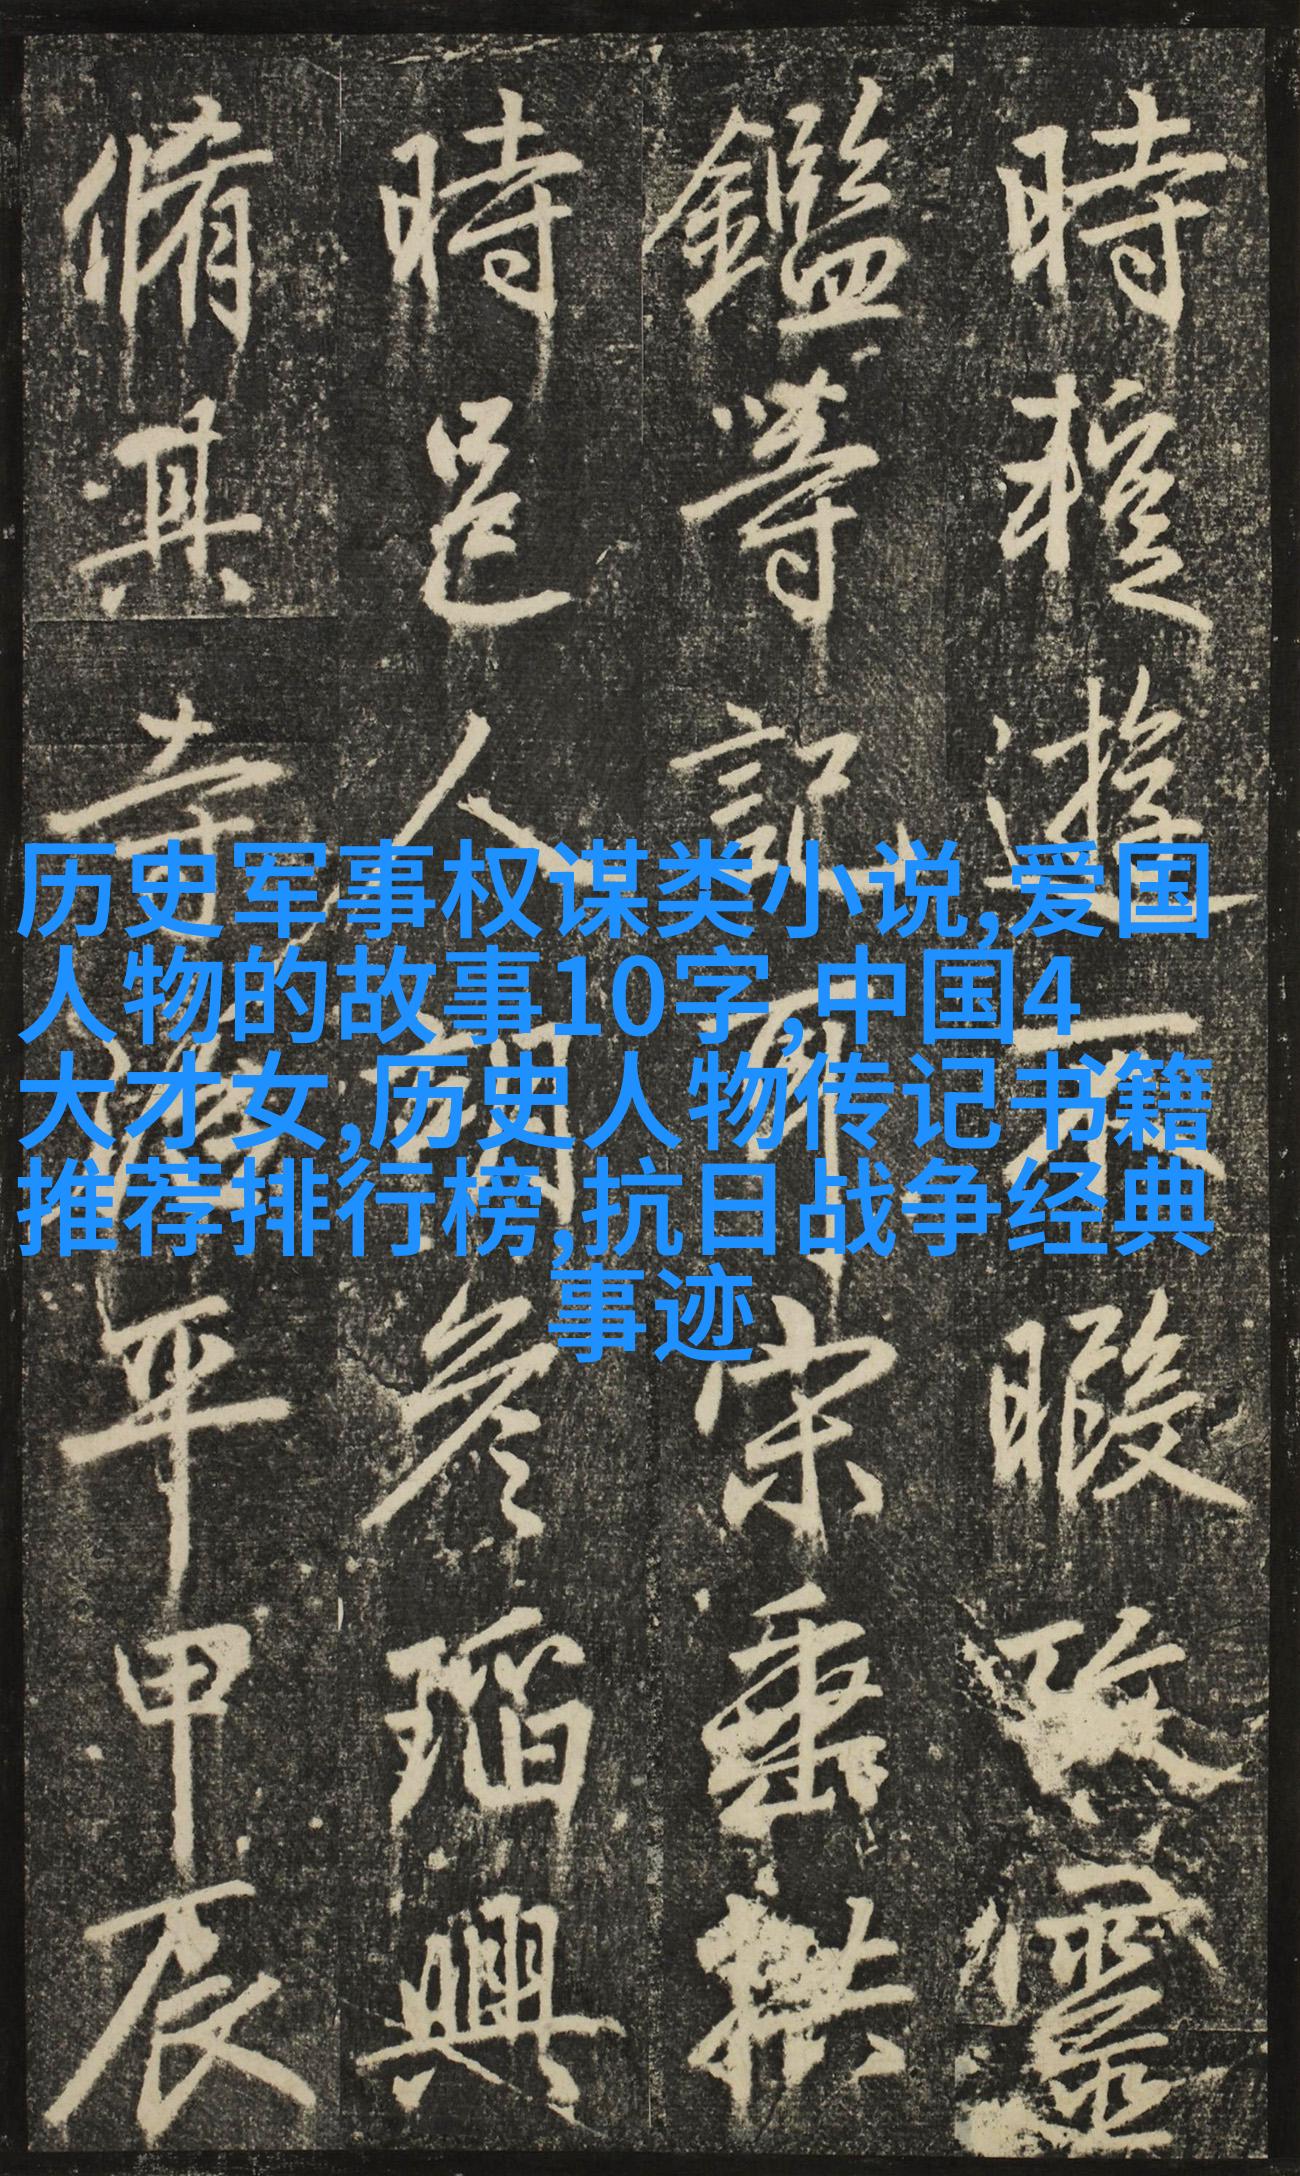 历史军事权谋类小说,爱国
人物的故事10字,中国4
大才女,历史人物传记书籍
推荐排行榜,抗日战争经典
事迹
時遊不暇
鑑等記耶宋垂拱
時邑人胡彦瑫興
脩其寺平甲辰